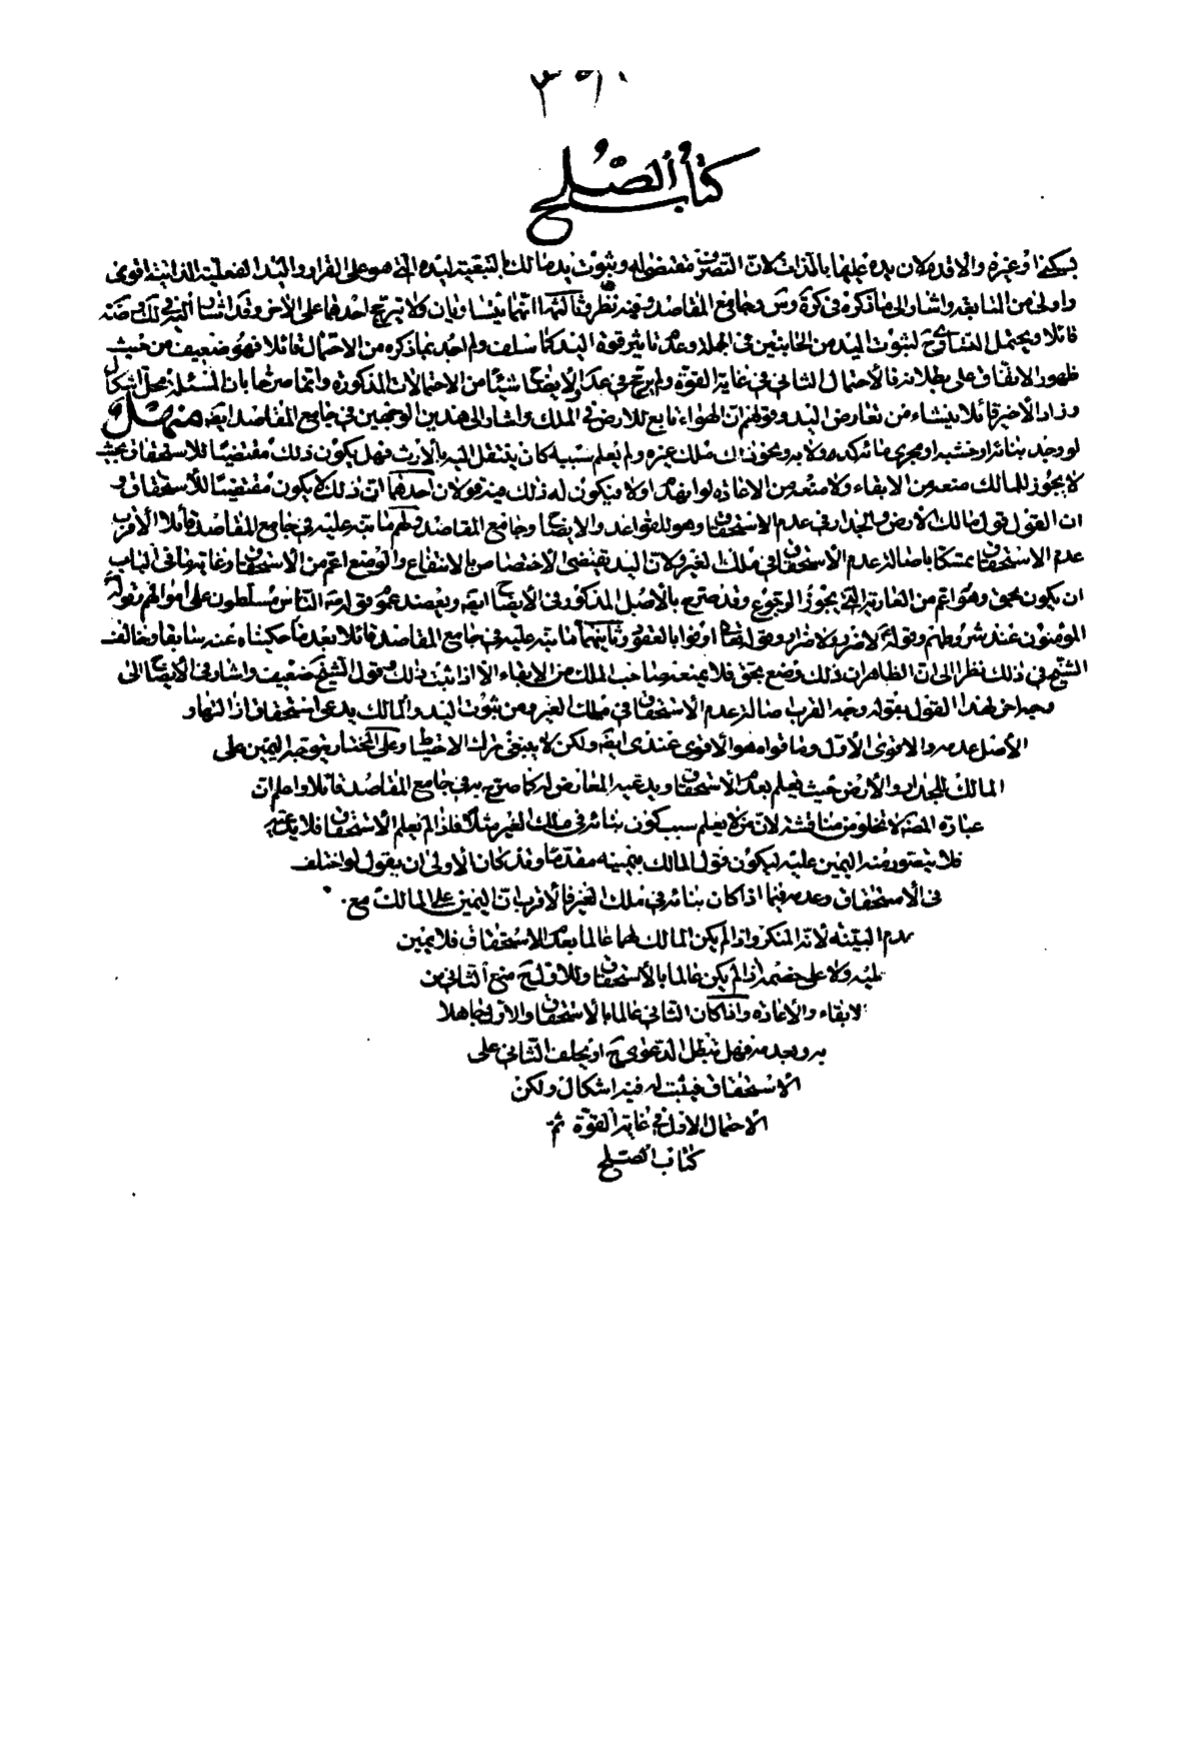 ٣٩٠
كتاب الصلح
بسكنى او غيره والاقدم لان يده عليها بالذات لان التصرف مقتض له وثبوت يد مالك بالتبعية ليده التي هو على القرار واليد الفعلية الذاتية اقوى
واولى من السابقة واشار الى ما ذكره في كرة وس وجامع المقاصد وفيه نظر ثالثها انهما يتساويان ولا ترجيح احدهما على الاخر وقد اشار اليه في لك
قائلا ويحتمل التساوى ح لثبوت اليد من الجانبين في الجملة وعدم تاثير قوة اليد كما سلف ولم اجد بما ذكره من الاحتمال قائلا فهو ضعيف من حيث
ظهور الاتفاق على بطلانه فالاحتمال الثاني في غاية القوة ولم يرجح في عد والايضاح شيئا من الاحتمالات المذكورة وانما صرحا بان المسئلة محل اشكال
وزاد الاخير قائلا ينشاء من تعارض اليد وقولهم ان الهواء تابع للارض في الملك واشار الى هذين الوجهين في جامع المقاصد ايضه منهل
لو وجد بنائه او خشبه او مجرى مائه في ملك غيره ولم يعلم سببه كان ينتقل اليه بالارث فهل يكون ذلك مقتضيا للاستحقاق بحيث
لا يجوز للمالك منعه من الابقاء ولا منعه من الاعاده لو انهدم او لا يكون له ذلك فيه قولان احدهما ان ذلك لا يكون مقتضيا للاستحقاق و
ان القول قول مالك الارض والجدار في عدم الاستحقاق وهو للقواعد والايضاح وجامع المقاصد ولهم ما نبه عليه في جامع المقاصد قائلا الاقرب
عدم الاستحقاق تمسكا باصالة عدم الاستحقاق في ملك الغير ولان اليد يقتضى الاختصاص بالانتفاع والوضع اعم من الاستحقاق وغاية ما في الباب
ان يكون بحق وهو اعم من العارية التي يجوز الرجوع وقد صرح بالاصل المذكور في الايضاح ايضه ويعضده عموم قوله الناس مسلطون على اموالهم وقوله
المؤمنون عند شروطهم وقوله لا ضرر ولا ضرار وقوله تعالى اوفوا بالعقود وثانيهما ما نبه عليه في جامع المقاصد قائلا بعد ما حكيناه عنه سابقا وخالف
الشيخ في ذلك نظرا الى ان الظاهر ان ذلك وضع بحق فلا يمنعه صاحب الملك من الابقاء الا اذا ثبت ذلك وقول الشيخ ضعيف واشار في الايضاح الى
وجه اخر لهذا القول بقوله وجه القرب اصالة عدم الاستحقاق في ملك الغير ومن ثبوت اليد والمالك يدعى استحقاق ازالتها و
الاصل عدمه والاقوى الاول وما قواه هو الاقوى عندى ايضه ولكن لا ينبغي ترك الاحتياط وعلى المختار يتوجه اليمين على
المالك للجدار والارض حيث يعلم بعدم الاستحقاق ويدعيه المعارض له كما صرح به في جامع المقاصد قائلا واعلم ان
عبارة المصنف لا تخلو من مناقشة لان من لا يعلم سبب كون بنائه في ملك الغير مثلا فاذا لم يعلم الاستحقاق فلا يدعيه
فلا يتصور منه اليمين عليه ليكون قول المالك بيمينه مقدما وقد كان الاولى ان يقول لو اختلف
في الاستحقاق وعدمه فيما اذا كان بنائه في ملك الغير فالاقرب ان اليمين على المالك مع
عدم البينة لانه المنكر واذا لم يكن المالك لهما عالما بعدم الاستحقاق فلا يمين
عليه ولا على خصمه اذا لم يكن عالما بالاستحقاق وللاول ح منع الثاني من
الابقاء والاعاده واذا كان الثاني عالما بالاستحقاق والاول جاهلا
به وبعدمه فهل تبطل الدعوى ح او يحلف الثاني على
الاستحقاق فيثبت له فيه اشكال ولكن
الاحتمال الاول في غاية القوة تم
كتاب الصلح